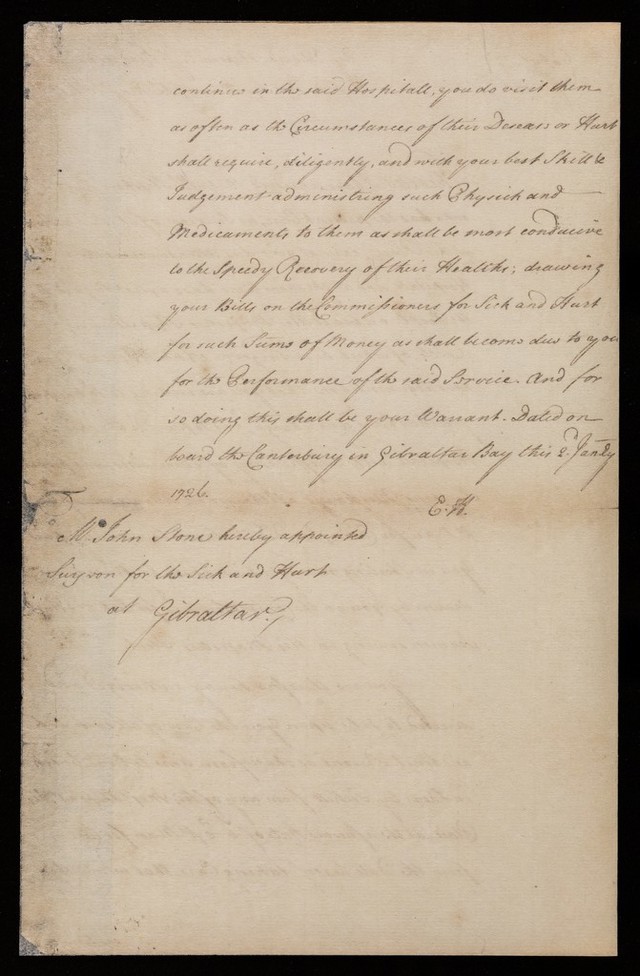 continue in the said Hospitall, you do visit them
as often as the Circumstances of their Deseases or Hurt
shall require, diligently, and with your best Skill &
Judgement administring such Physick and
Medicaments to them as shall be most conducive
to the Speedy Recovery of their Healths; drawing
your Bills on the Commissioners for Sick and Hurt
for such Sums of Money as shall become due to you
for the Performance of the said Service. And for
so doing this shall be your Warrant. Dated on
board the Canterbury in Gibraltar Bay this 2d. Janry
1726.
E. H.
Mr. John Stone hereby appointed
Surgeon for the Sick and Hurt
at Gibraltar.